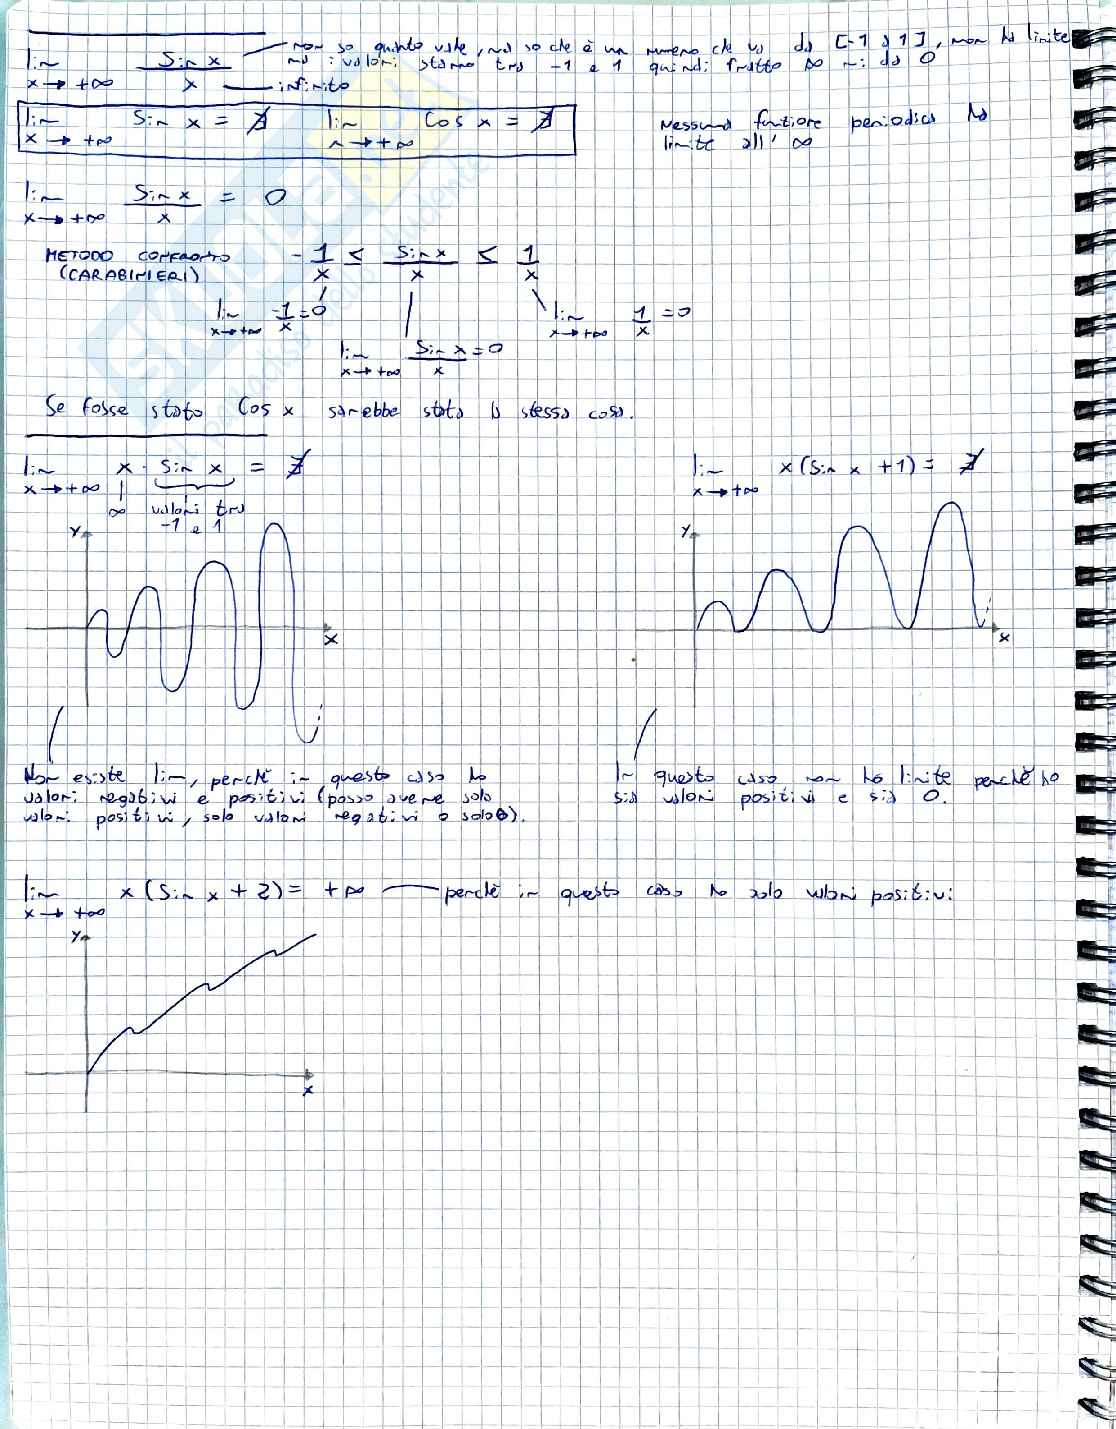 lim sin x / x non so quanto vale, ma so che è un numero che va da [-1 a 1], non ha limite
x → +∞ infinito ma i valori stanno tra -1 e 1 quindi fratto ∞ mi da 0
lim sin x = ∄ lim cos x = ∄
x → +∞ x → +∞
Nessuna funzione periodica ha
limite all' ∞
lim sin x / x = 0
x → +∞
METODO CONFRONTO - 1/x ≤ sin x / x ≤ 1/x
(CARABINIERI)
lim -1/x = 0 lim 1/x = 0
x → +∞ x → +∞
lim sin x / x = 0
x → +∞
Se fosse stato cos x sarebbe stata la stessa cosa.
lim x · sin x = ∄
x → +∞ ∞ valori tra
-1 e 1
y
x
Non esiste lim, perchè in questo caso ho
valori negativi e positivi (posso avere solo
valori positivi, solo valori negativi o solo 0).
lim x (sin x + 1) = ∄
x → +∞
y
x
In questo caso non ho limite perchè ho
sia valori positivi e sia 0.
lim x (sin x + 2) = +∞ perchè in questo caso ho solo valori positivi
x → +∞
y
x